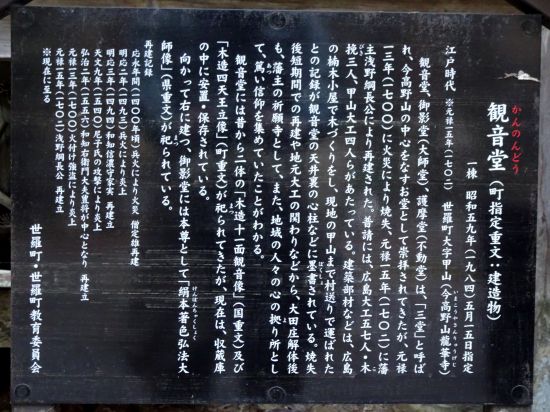 かんのんどう
観音堂（町指定重文・建造物）
一棟 昭和五九年（一九八四）五月一五日指定
江戸時代 ※元禄一五年（一七〇二） 世羅町大字甲山（今高野山龍華寺）
いまこうやさんりゅうげじ
観音堂、御影堂（大師堂）、護摩堂（不動堂）は、「三堂」と呼ば
れ、今高野山の中心をなすお堂として崇拝されてきたが、元禄
一三年（一七〇〇）に火災により焼失、元禄一五年（一七〇二）に藩
主浅野綱長公により再建された。普請には、広島大工五七人・木
挽三人、甲山大工四人らがあたっている。建築部材などは、広島
の楠木小屋で木づくりをし、現地の甲山まで村送りで運ばれた
との記録が観音堂の天井裏の心柱などに墨書されている。焼失
後短期間での再建や地元大工の関わりなどから、大田庄解体後
も、藩主の祈願寺として、また、地域の人々の心の拠り所とし
て、篤い信仰を集めていたことがわかる。
観音堂には昔から二体の「木造十一面観音像」（国重文）及び
「木造四天王立像」（町重文）が祀られてきたが、現在は、収蔵庫
の中に安置・保存されている。
向かって右に建つ、御影堂には本尊として「絹本著色弘法大
けんぽんちゃくしょく
師像」（県重文）が祀られている。
再建記録
応永年間（一四〇〇年頃）兵火により火災 僧定雄再建
明応二年（一四九三）兵火により炎上
明応三年（一四九四）和知信濃守家実 再建立
天文九年（一五四〇）尼子氏の攻撃により炎上
弘治二年（一五五六）和知右衛門大夫豊将が中心となり 再建立
元禄一三年（一七〇〇）火付け強盗により炎上
元禄一五年（一七〇二）浅野綱長公 再建立
※現在に至る
世羅町・世羅町教育委員会